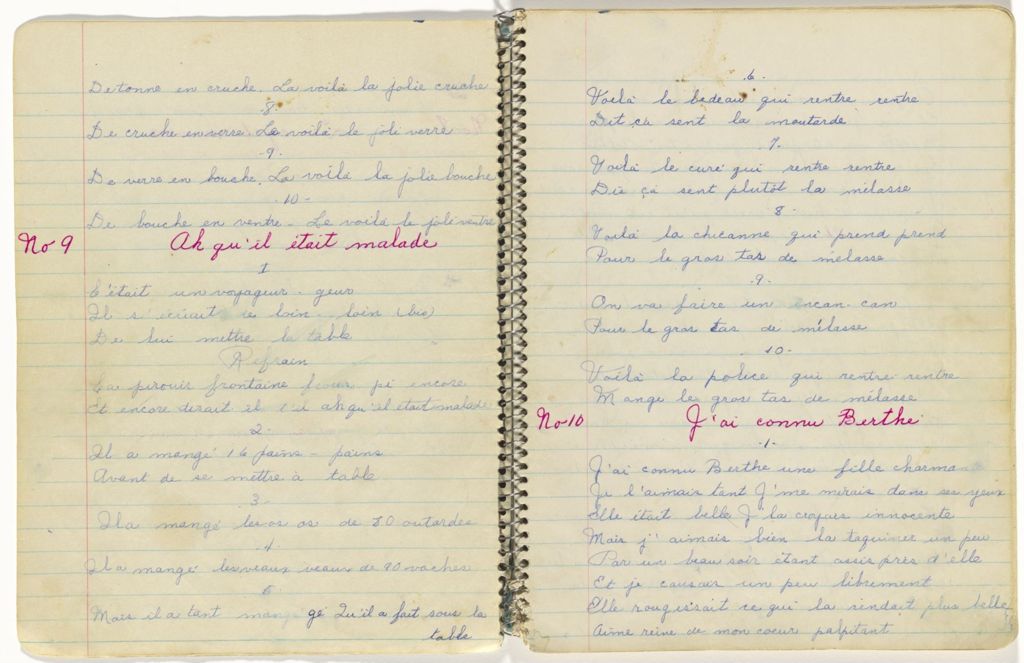 De tonne en cruche. La voilà la jolie cruche
.8.
De cruche en verre. Le voilà le joli verre
.9.
De verre en bouche. La voilà la jolie bouche
.10.
De bouche en ventre. Le voilà le joli ventre
No 9 Ah qu'il était malade
1
C'était un voyageur - geur
Il s'écriait de loin - loin (bis)
De lui mettre la table
Refrain
pi encore
Et encore dirait il ah qu'il était malade
2.
Il a mangé 16 pains - pains
Avant de se mettre à table
3.
Il a mangé les os os de 80 outardes
4
Il a mangé les veaux veaux de 90 vaches
5
Mais il a tant mangé gé Qu'il a fait sous la
table
.6.
Voilà le bedeau qui rentre rentre
Dit ça sent la moutarde
.7.
Voilà le curé qui rentre rentre
Dis ça sent plutôt la mélasse
8.
Voilà la chicanne qui prend prend
Pour le gros tas de mélasse
.9.
On va faire un encan-can
Pour le gros tas de mélasse
.10.
Voilà la police qui rentre rentre
Mange le gros tas de mélasse
No 10 J'ai connu Berthe
.1.
J'ai connu Berthe une fille charman
Je l'aimais tant J'me mirais dans ses yeux
Elle était belle J la croyais innocente
Mais j'aimais bien la taquiner un peu
Par un beau soir étant assis près d'elle
Et je causais un peu librement
Elle rougissait ce qui la rendait plus belle
Aime reine de mon coeur palpitant